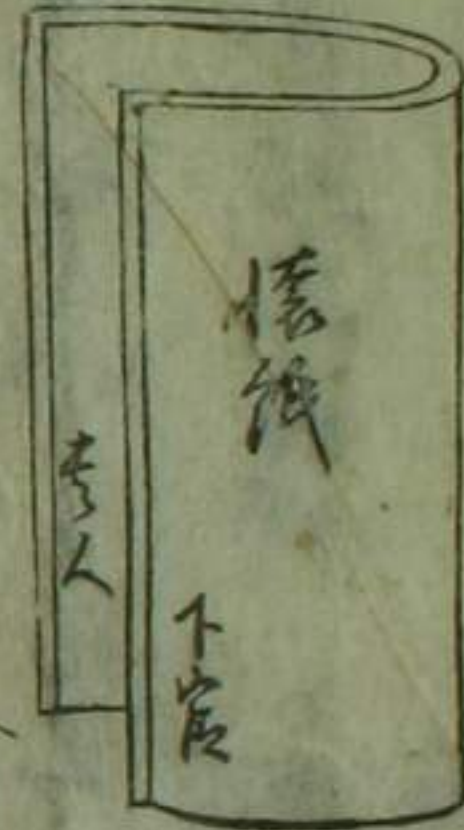 懐紙
下官
貴人